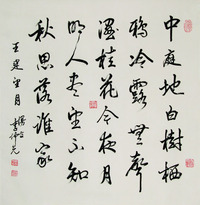 中庭地白樹栖
鴉冷露無聲
濕桂花今夜月
明人盡望不知
秋思落誰家
王建望月